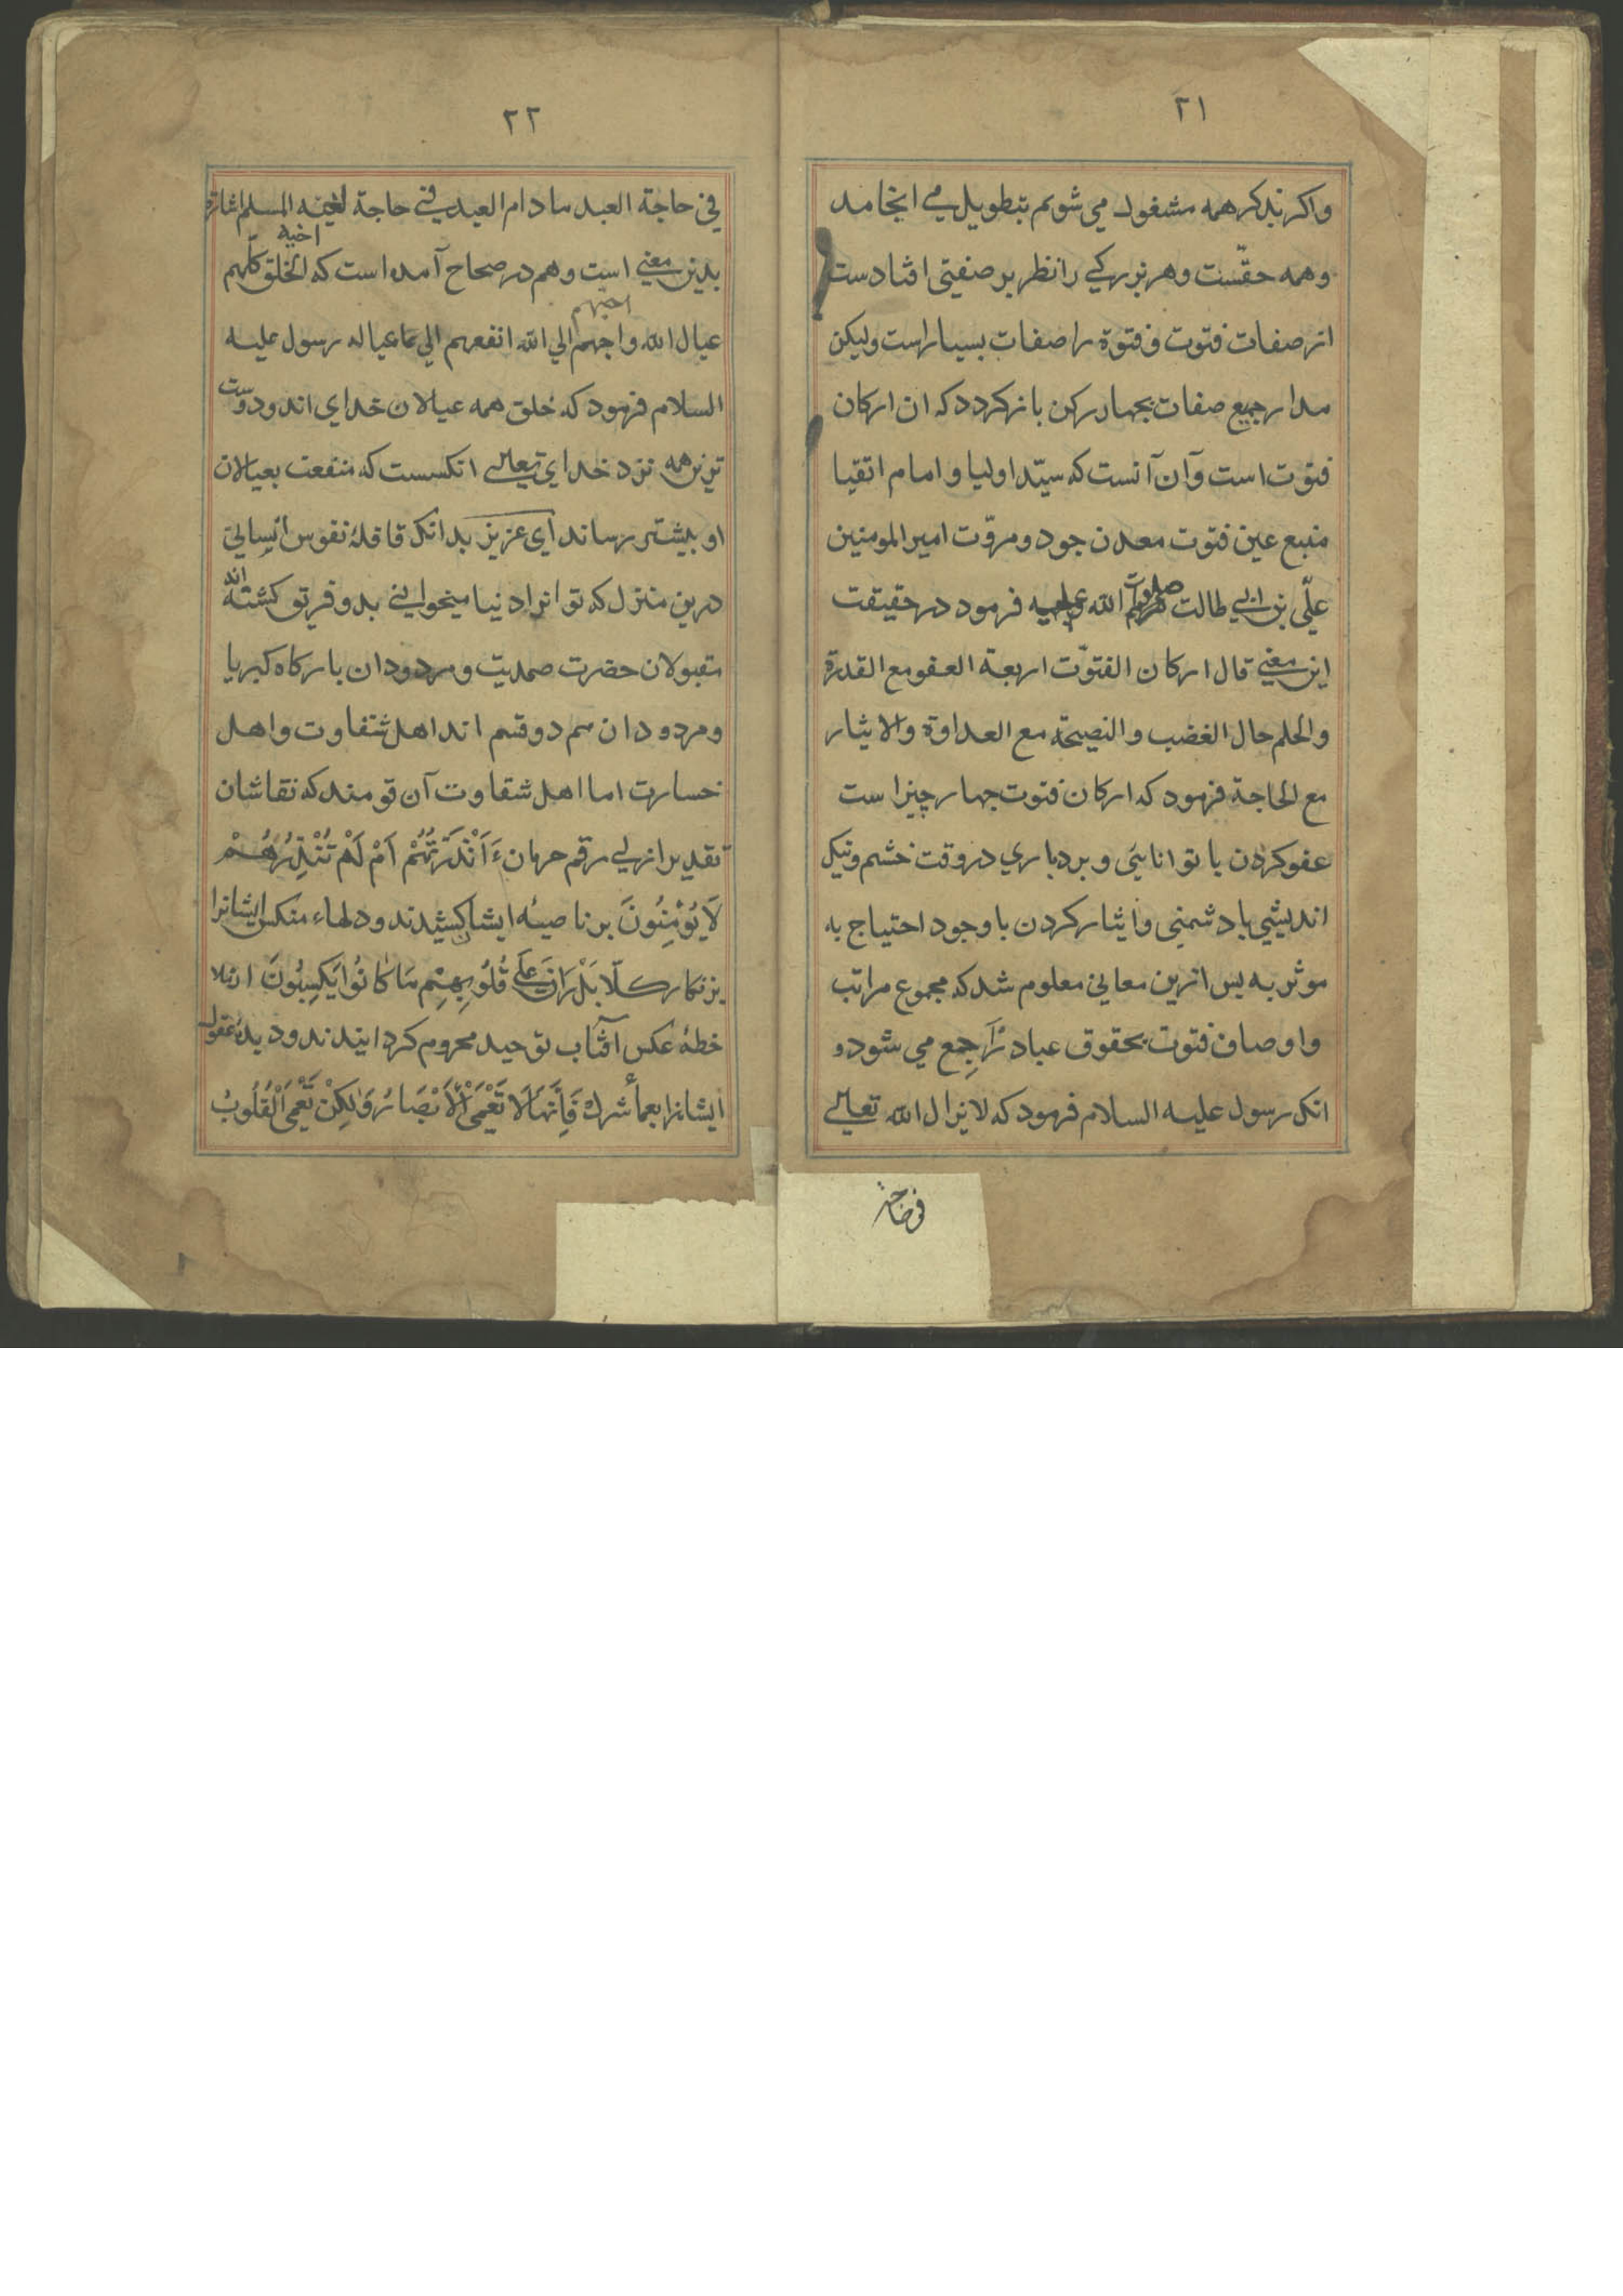 ٢١
واکر بذکر همه مشغول می شویم بتطویل می انجامد
وهمه حقّست وهر بزرکی را نظر بر صفتی افتادست
از صفات فتوت وفتوة را صفات بسیار است ولیکن
مدار جمیع صفات بچهار رکن باز کردد که ان ارکان
فتوت است وآن آنست که سیّد اولیا و امام اتقیا
منبع عین فتوت معدن جود ومروّت امیر المومنین
علّی بن ابی طالت الله فرمود در حقیقت
این معنی قال ارکان الفتوّت اربعة العفو مع القدرة
والحلم حال الغضب والنصیحة مع العداوة والایثار
مع الحاجة فرمود که ارکان فتوت چهار چیز است
عفو کردن با توانایی و بردباری در وقت خشم ونیک
اندیشی با دشمنی وایثار کردن با وجود احتیاج به
موثر به پس ازین معانی معلوم شد که مجموع مراتب
واوصاف فتوت بحقوق عباد رَاجِع می شود و
انک رسول علیه السلام فرمود که لا یزال الله تعالی
فی حاجة
٢٢
فی حاجة العبد ما دام العبد فی حاجة اخیه المسلم اشارة
بدین معنی است وهم در صحاح آمده است که الخلق کلّهم
عیال الله واحبهم الی الله انفعهم الی عیاله رسول علیه
السلام فرمود که خلق همه عیالان خدای اند ودوست
ترین همه نزد خدای تعالی انکسست که منفعت بعیالان
او بیشتر رساند ای عزیز بدانک قافلهٔ نفوس انسانی
درین منزل که تو انرا دنیا میخوانی بدو فرقو کشته اند
مقبولان حضرت صمدیت ومردودان بارکاه کبریا
ومردودان هم دو قسم اند اهل شقاوت واهل
خسارت اما اهل شقاوت آن قومند که نقاشان
تقدیر ازلی رقم حرمان ءَاَنْذَرْتَهُمْ اَمْ لَمْ تُنْذِرْهُمْ
لَا یُوْمِنُونَ بر ناصیهٔ ایشان کشیدند ودلهاء منکس ایشانرا
بزنکار کلّا بَلْ رَانَ عَلَی قُلُوبِهِمْ مَا کَانُوا یَکسِبُونَ از
خطهٔ عکس آفتاب توحید محروم کردانیدند ودیدهٔ عقول
ایشانرا بعمأ شرک فَاِنَّهَا لَا تَعْمَی الْاَبْصَارُ وَلٰکِنْ تَعْمَی الْقُلُوبُ